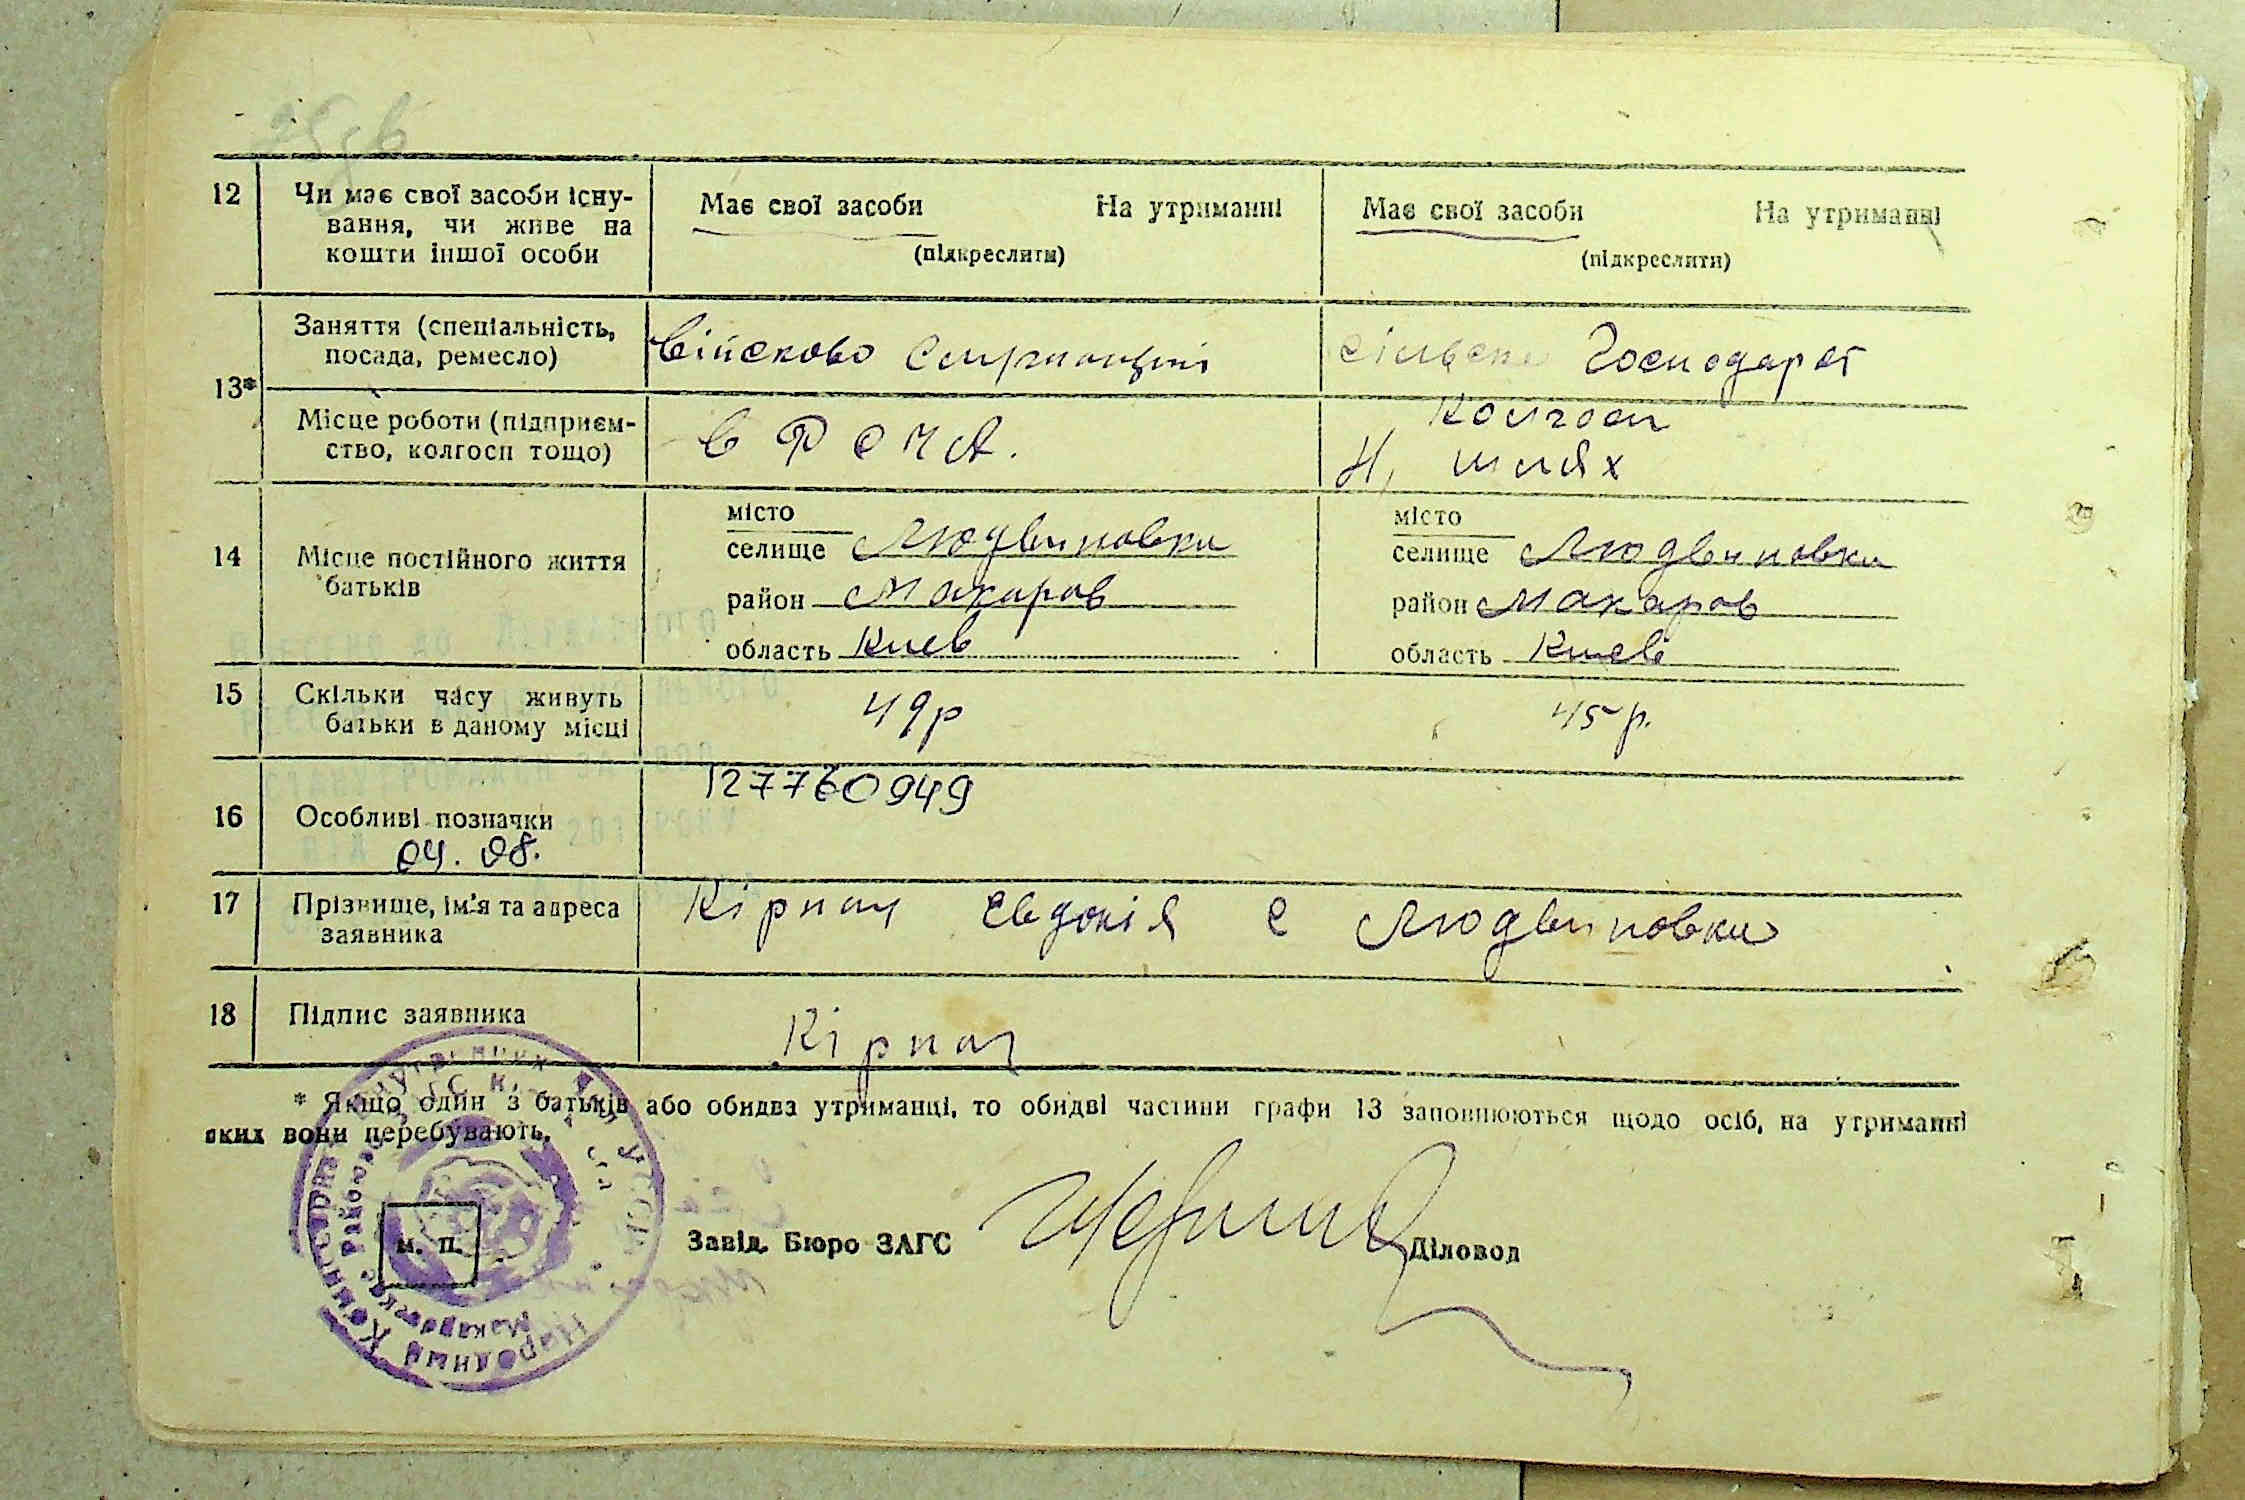 12 Чи має свої засоби існу-
вання, чи живе на
кошти іншої особи
Має свої засоби На утриманні
(підкреслити)
Має свої засоби На утриманні
(підкреслити)
13*
Заняття (спеціальність,
посада, ремесло)
Військово
Господарст
Місце роботи (підприєм-
ство, колгосп тощо)
в Р С Ч А.
Колгосп
Н. шлях
14 Місце постійного життя
батьків
місто
селище Людвиновка
район Макаров
область Киев
місто
селище Людвиновка
район Макаров
область Киев
15 Скільки часу живуть
батьки в даному місці
49р
45 р.
16 Особливі позначки
04. 08.
127760949
17 Прізвище, ім'я та адреса
заявника
Кірпач Евдокія с Людвиновка
18 Підпис заявника
Кірпач
* Якщо один з батьків або обидва утриманці, то обидві частини графи 13 заповнюються щодо осіб, на утриманні
яких вони перебувають.
м. п.
Завід. Бюро ЗАГС
Діловод